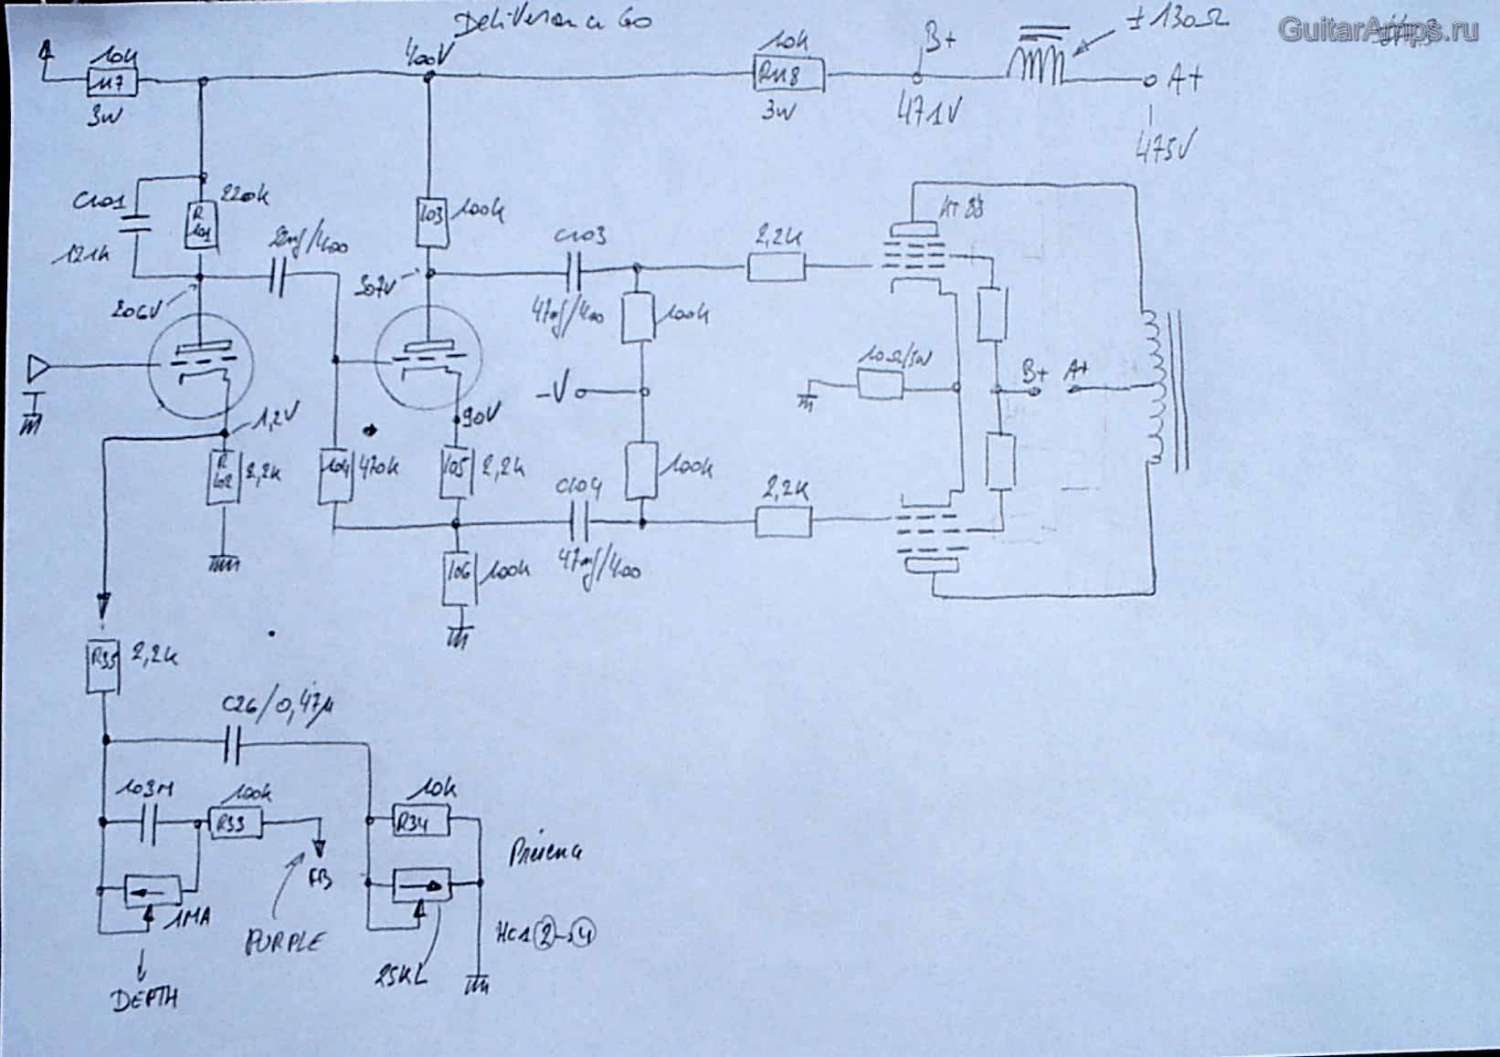 Deliverance 60
GuitarAmps.ru
± 130Ω
10k
117
3W
400V
10k
R118
3W
B+
471V
A+
475V
C101
R
101
220k
22nf/400
206V
103
100k
307V
C103
47nf/400
2,2K
100k
KT 88
10Ω/5W
-V
B+
A+
1,2V
90V
R
102
2,2k
104
470k
105
2,2k
C104
47nf/400
100k
2,2K
106
100k
R35
2,2k
C26/0,47µ
103M
100k
R33
10k
R34
FB
1MA
PURPLE
DEPTH
25KL
HC1 2→4